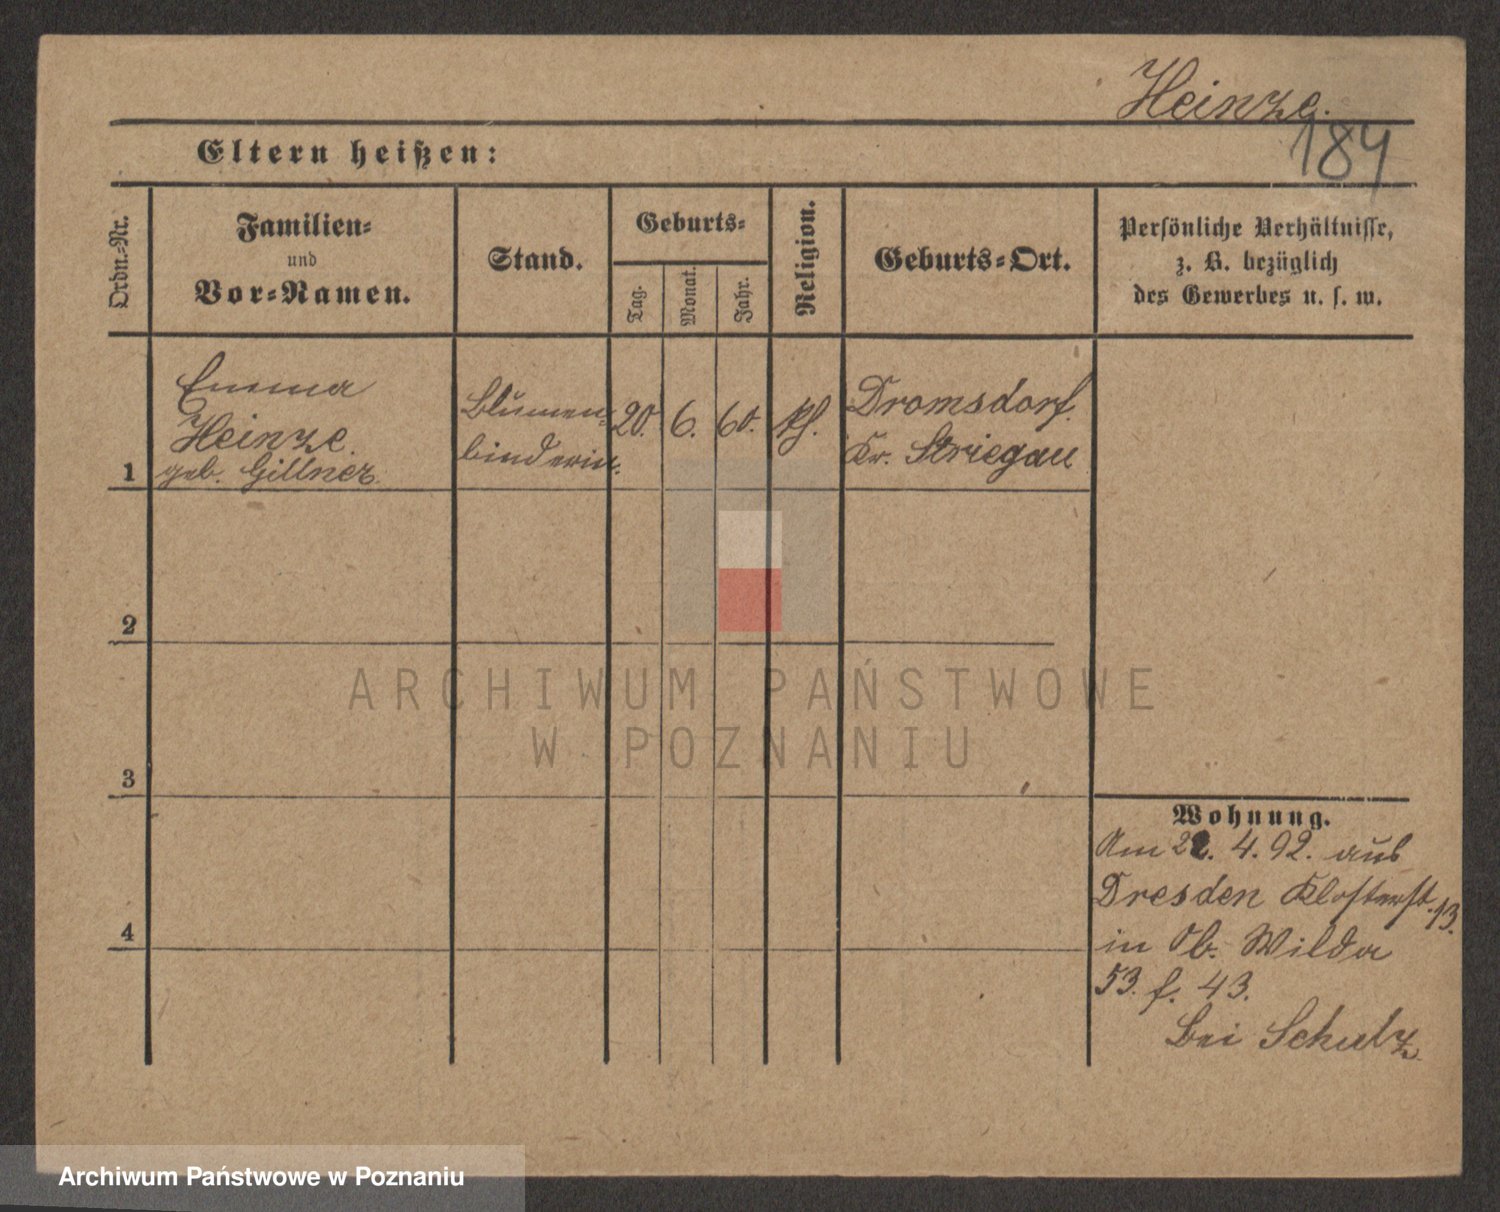 Heinze.
184
Eltern heißen:
Ordn.-Nr.
Familien-
und
Vor-Namen.
Stand.
Geburts-
Tag.
Monat.
Jahr.
Religion.
Geburts-Ort.
Persönliche Verhältnisse,
z. B. bezüglich
des Gewerbes u. s. w.
1
Emma
Heinze.
geb. Gillner
Blumen-
binderin.
20.
6.
60.
Dromsdorf.
Kr. Striegau
2
3
4
Wohnung.
Am 22. 4. 92. aus
Dresden Klosterst. 13.
in Ob. Wilda
53. f. 43.
bei Schulz
ARCHIWUM PAŃSTWOWE
W POZNANIU
Archiwum Państwowe w Poznaniu